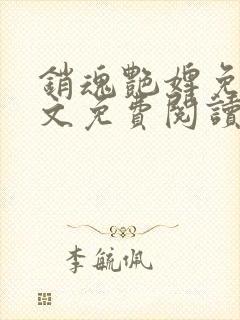 銷魂艷婢免
文免費閱讀
李毓佩